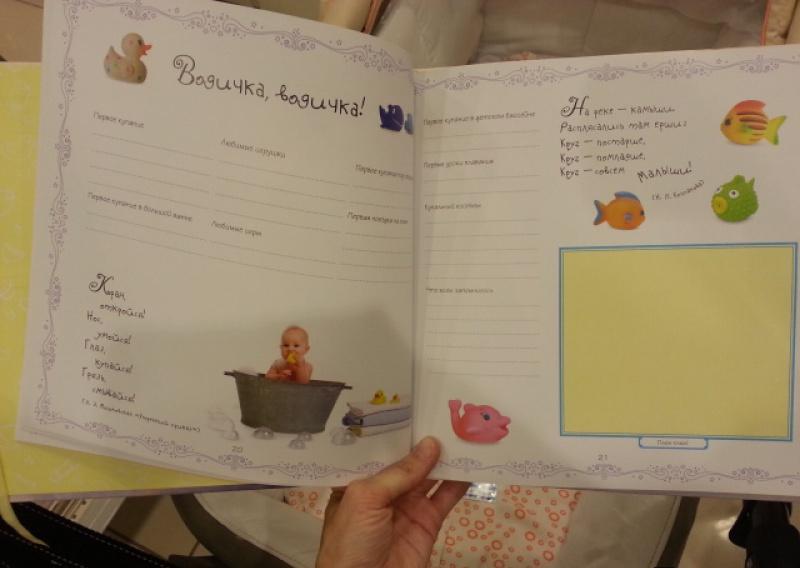 Водичка, водичка!
Первое купание
Любимые игрушки
Первое купание в большой ванне
Любимые игры
Кран,
откройся!
Нос,
умойся!
Глаз,
купайся!
Грязь,
смывайся!
20
Первое купание в детском бассейне
Первые уроки плавания
Купальный костюм
Что всем запомнилось
На реке — камыши.
Расплясались там ерши:
Круг — постарше,
Круг — помладше,
Круг — совсем малыши!
21